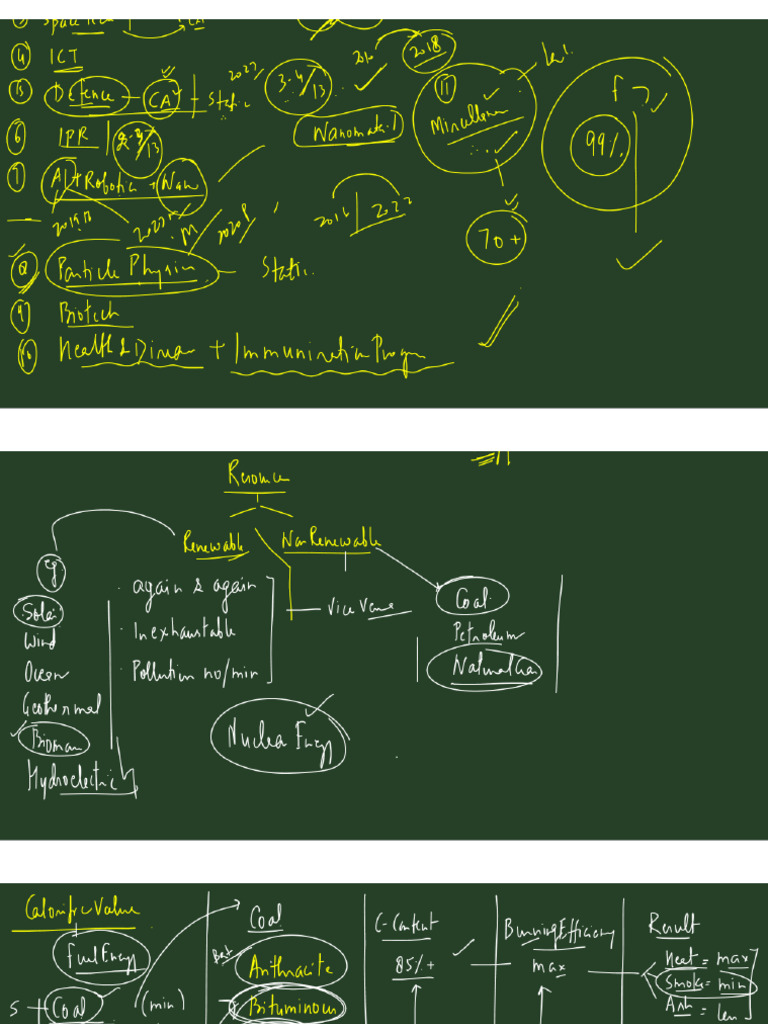 Space Tech
④ ICT
⑤ Defence - CA + Static 2022 3-4/13 2018
⑥ IPR 2-3/13 Nanomat.
⑦ AI + Robotics + Nan
2022 2020 P 2016 | 2022
⑧ Particle Physics - Static
⑨ Biotech
⑩ Health & Disease + Immunization Progm
⑪ Miscellaneous
70+
99%
Resource
Renewable Non Renewable
eg
Solar
Wind
Ocean
Geothermal
Biomass
Hydroelectric
· again & again
· Inexhaustable
· Pollution no/min
Vice Versa
Coal
Petroleum
Natural Gas
Nuclear Energy
Calorific Value
Fuel Energy
S + Coal (min)
Coal
Best Anthracite
Bituminous
C-Content
85%+
Burning Efficiency
max
Result
Heat = max
Smoke = min
Ash = Less